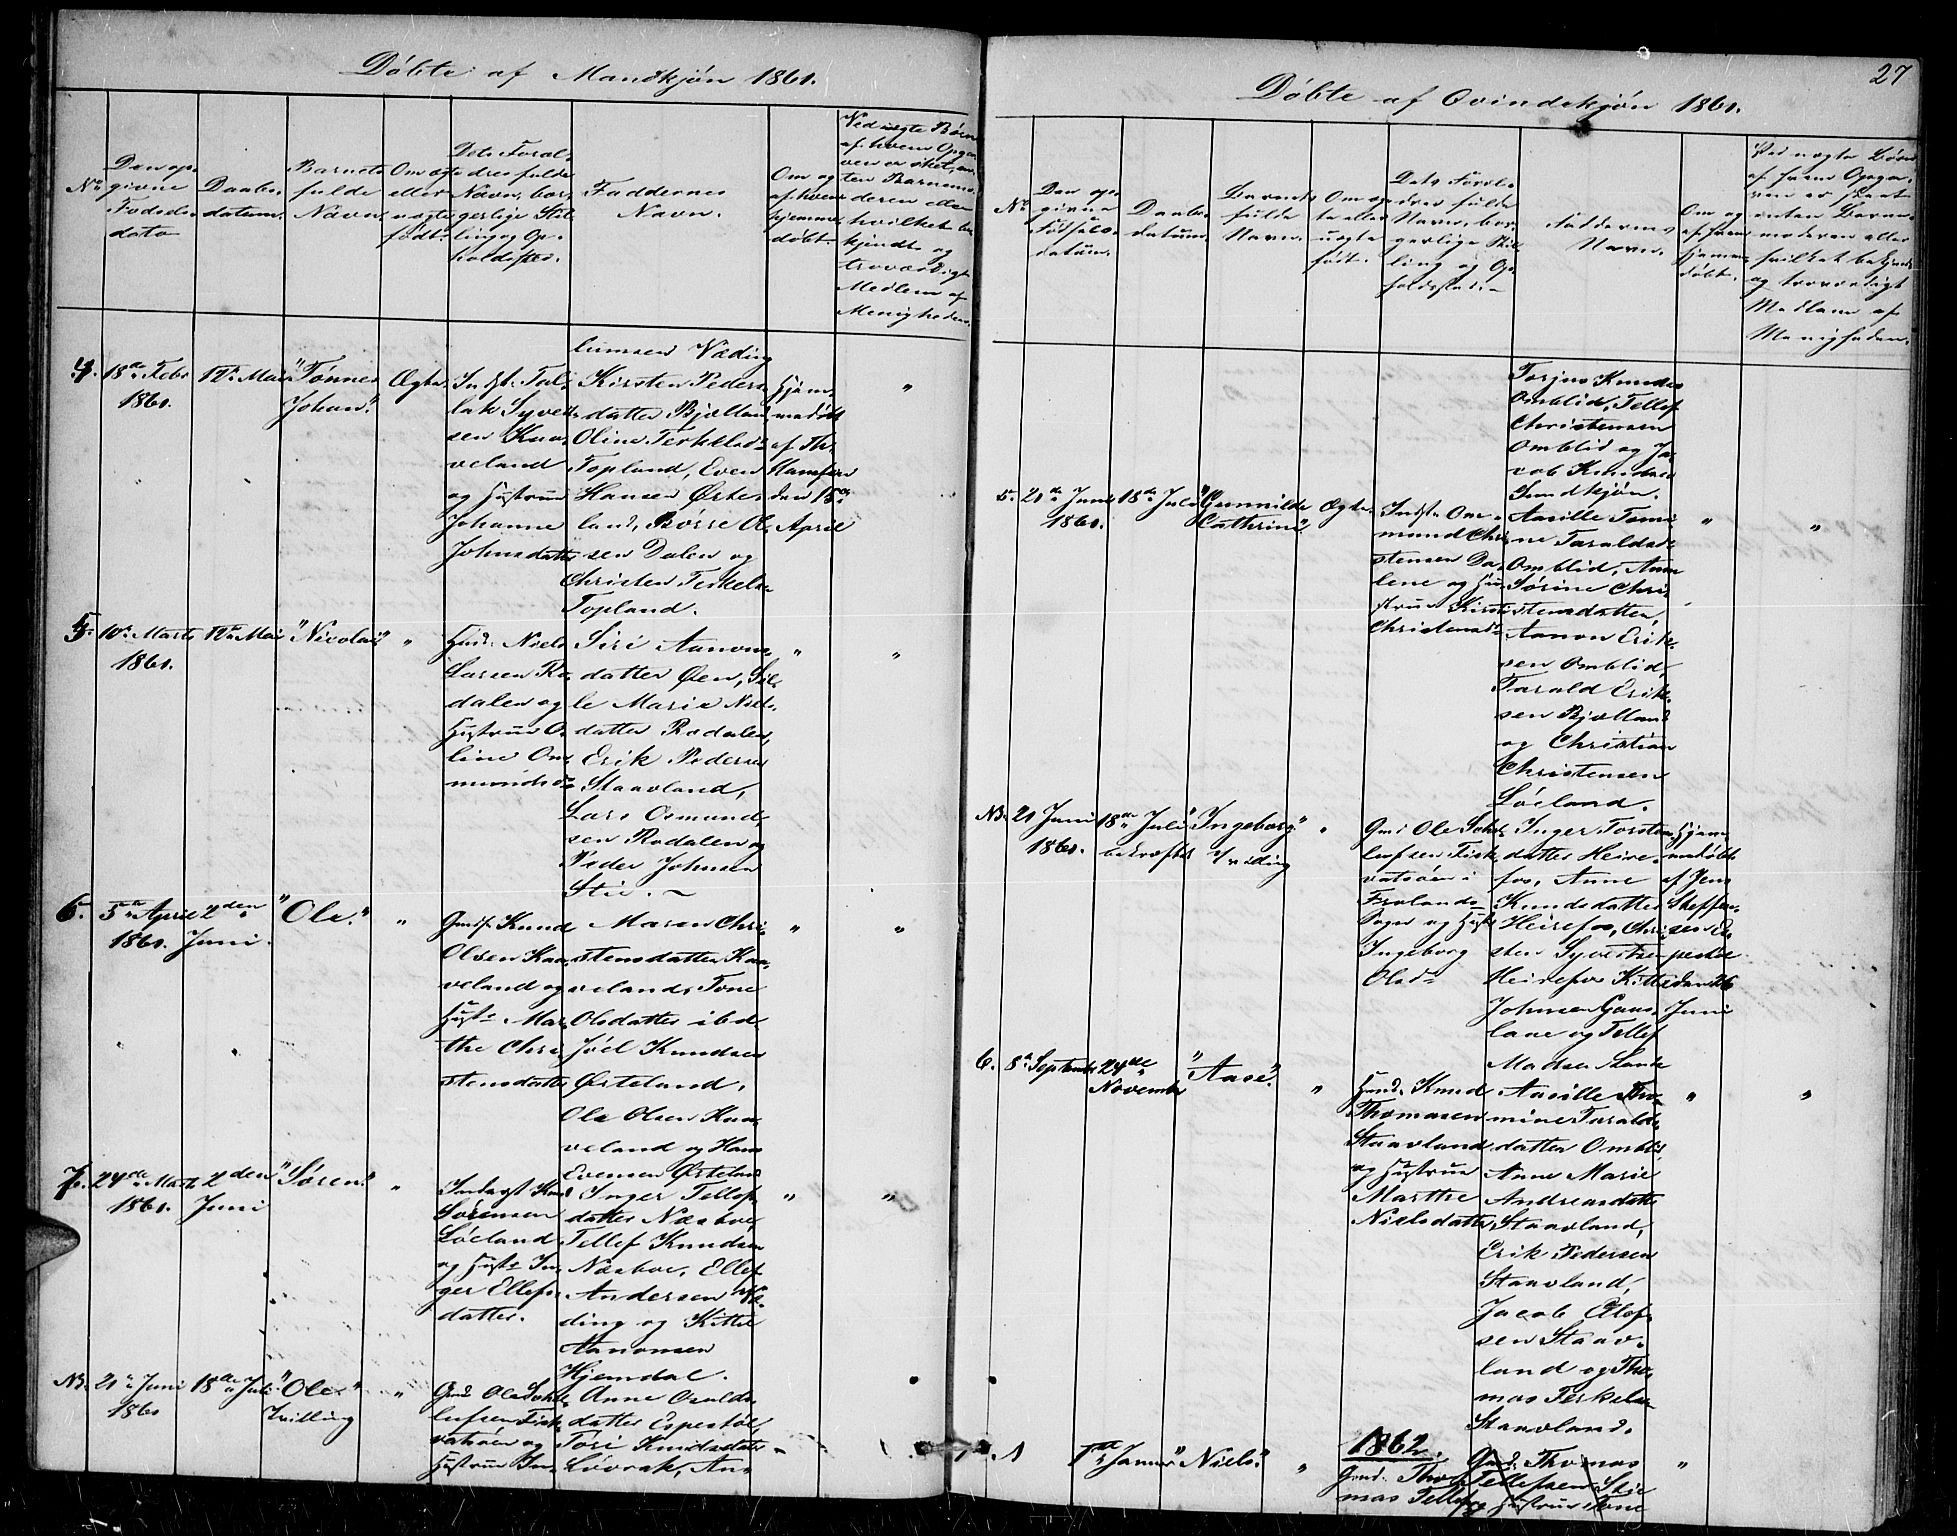 Döbte af Mandkjön 1861.
No
Den op-
givne
Födsels-
dato
Daabs-
datum.
Barnets
fulde
Navn.
Om æg-
te eller
uægte
födt.
Dets Foræl-
dres fulde
Navn, bor-
gerlige Stil-
ling og Op-
holdssted.
Faddernes
Navn.
Om og
af hvem
hjemme-
döbt.
Ved uægte Börn
af hvem Opga-
ven er sket, en-
ten Barnemo-
deren eller
hvilket be-
kjendt og
troværdigt
Medlem af
Menigheden.
4. 18de Febr 1861. 12te Mai "Tönnes Johan." Ægte
Indst: Tal-
lak Syvert-
sen Kaa-
veland
og Hustrue
Johanne
Johnsdatter
lumsen Væding
Kirsten Peders-
datter Bjelland
Oline Terkelsd-
Topland, Even
Hansen Öste-
land, Börre Ol-
sen Dalen og
Christen Terkels.
Topland.
Hjem-
medöbt
af Th.
Hansen
den 15de
April
"
5. 10de Marts 1861. 12te Mai "Nicolai" "
Huusd. Niels
Larsen Ro-
dalen og
Hustrue O-
line Om-
mundsd-
Siri Aanons-
datter Öen, Sil-
le Marie Niels-
datter Rodalen,
Erik Pedersen
Staavland,
Lars Osmund-
sen Rodalen og
Peder Johnsen
Stie.
"
"
6. 5te April 1861. 2den Juni. "Ole." "
Gmd. Knud
Olsen Kaa-
veland og
Hust: Mar-
the Chri-
stensdatter
Maren Chri-
stensdatter Kaa-
veland, Tone
Olsdatter ibd
Jöel Knudsen
Österland,
Ole Olsen Kaa-
veland og Hans
Evensen Österland
"
"
7. 24de Marts 1861. 2den Juni "Sören" "
Inderst Knud
Sörensen
Löeland
og Hust: In-
ger Ellefs-
datter.
Inger Tellefs-
datter Næsboe,
Tellef Knudsen
Næsboe, Ellef
Andersen Væ-
ding og Kittil
Aanonsen
Hjemdal.
"
"
N3. 21de Juni 1861 18de Juli "Ole" Tvilling "
Gmd. Ole
lufsen Fisk-
vatnöen og
Hustrue In-
Anne Osulds-
datter Espestöl,
Tori Knudsdatter
Lövrak, An-

Döbte af Qvindekjön 1861.
27
No
Den op-
givne
Födsels-
datum.
Daabs-
datum.
Barnets
fulde
Navn.
Om æg-
te eller
uægte
födt.
Dets Foræl-
dres fulde
Navn, bor-
gerlige Stil-
ling og Op-
holdssted.
Faddernes
Navn.
Om og
af hvem
hjemme-
döbt.
Ved uægte Börn
af hvem Opga-
ven er skeet
enten Barne-
moderen eller
hvilket bekjendt
og troværdigt
Medlem af
Menigheden.
5. 21de Juni 1861. 18de Juli "Gunnilde Cathrine" Ægte.
Indst: Om-
mund Chri-
stensen Da-
lene og Hu-
strue Kirsti
Christensd-
Torjus Knudsen
Omblid, Tellef
Christensen
Omblid og Ja-
cob Knudsen
Sundkjön.
Aasille Tomi-
ne Taraldsd-
Omblid, Anne
Sörine Chri-
stensdatter,
Aanon Erik-
sen Omblid,
Tarald Erik-
sen Bjelland
og Christian
Christensen
Löeland.
"
"
N3. 21 Juni 1861. 18de Juli bekræftet "Ingeborg" Tvilling "
Gmd Ole
lufsen Fisk-
vatnöen i
Frolands-
Sogn og Hust:
Ingeborg
Olsd-
Inger Torstens-
datter Heire-
fos, Anne
Knudsdatter
Heirefos, Chri-
sten Syvertsen
Heirefos Kittel
Johnsen Gaas-
laae og Tellef
Madsen
Hjem-
medöbt
af Jens
Steffen-
sen Es-
pestöl
den 26
Juni
6. 8de September 24de November "Aase" "
Huusd. Knud
Thomasen
Staavland
og Hustrue
Marthe
Nielsdatter
Aasille Tho-
mine Taralds-
datter Omblid,
Anne Marie
Andreasdatter
Staavland,
Erik Pedersen
Staavland,
Jacob Olof-
sen Staav-
land og Tho-
mas Terkelsen
Staavland.
"
"
1862.
1 1ste Januar "Niels" "
Gmd. Tho-
mas Tellefs
Gmd. Thomas
Tellefsen Stie
og Hustrue Tone
"